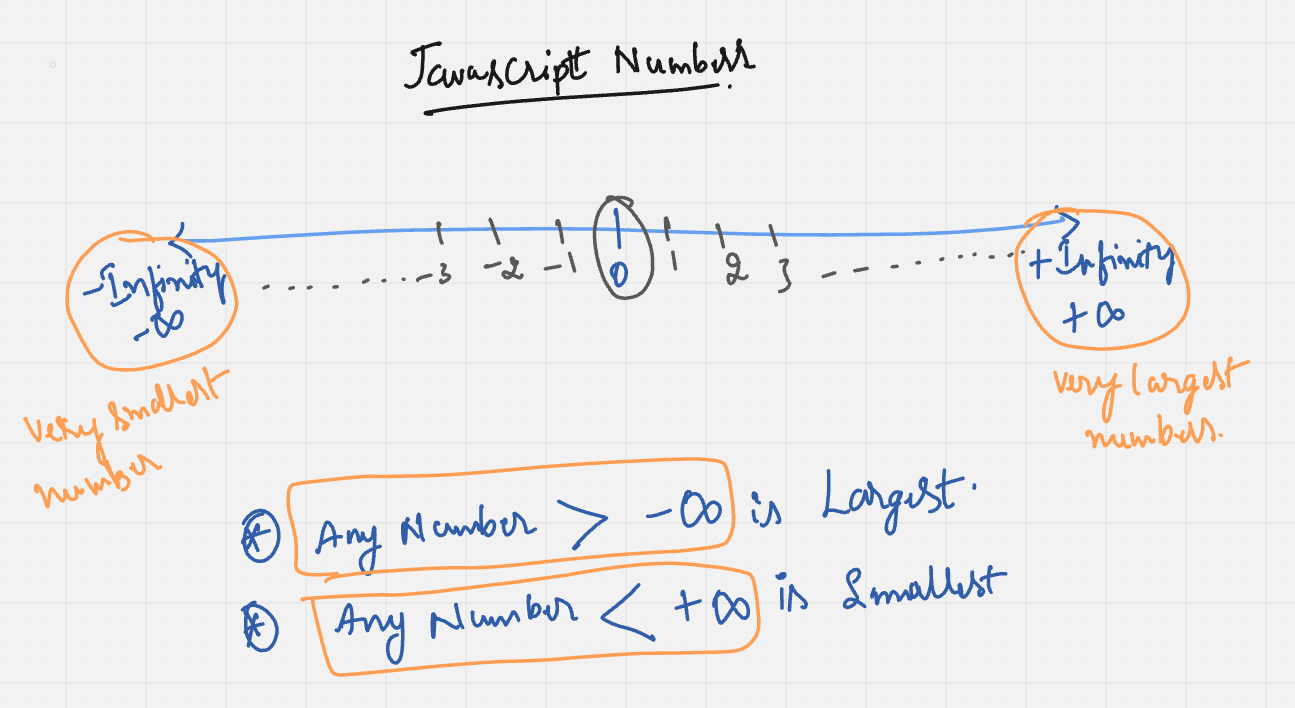 Javascript Numbers.
-3 -2 -1 0 1 2 3
-Infinity
-∞
+Infinity
+∞
very smallest
number
very largest
numbers.
* Any Number > -∞ is Largest.
* Any Number < +∞ is Smallest